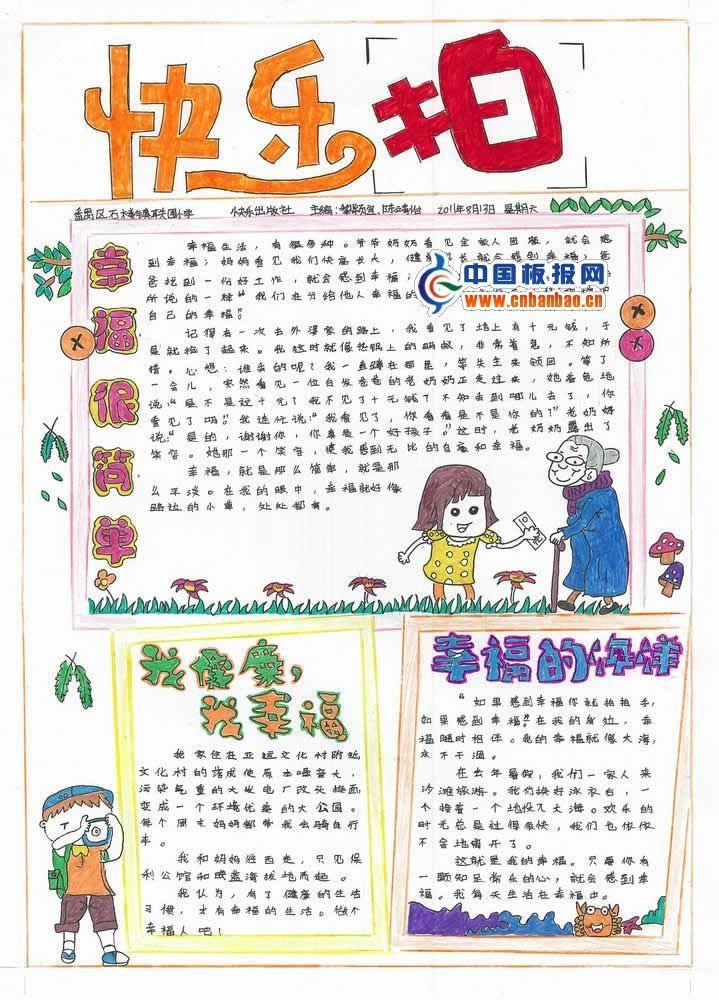 快乐拍
番禺区石楼镇联围小学 快乐出版社 主编: 2011年8月13日 星期六
幸福很简单
中国板报网
www.cnbanbao.cn
幸福生活，有很多种。爷爷奶奶看见全家人团聚，就会感
到幸福；妈妈看见我们快高长大，健康成长就会感到幸福；爸
爸找到一份好工作，就会感到幸福；
所说的一样“我们在分给他人幸福的
自己的幸福”。
记得有一次去外婆家的路上，我看见了地上有十元钱，于
是就捡了起来。我这时就像热锅上的蚂蚁，非常着急，不知所
措。心想：谁丢的呢？我一直蹲在那里，等失主来领回。等了
一会儿，突然看见一位白发苍苍的老奶奶正走过来，她着急地
说：“是不是这十元？我不见了十元钱？不知丢到哪儿去了，你
看见了吗？”我连忙说：“我看见了，你看看是不是你的？”老奶奶
说：“是的，谢谢你，你真是一个好孩子。”这时，老奶奶露出了
笑容。她那一个笑容，使我感到无比的自豪和幸福。
幸福，就是那么简单，就是那
么平淡。在我的眼中，幸福就好像
路边的小草，处处都有。
我健康，
我幸福
我家住在亚运文化村附近
文化村的落成使原本噪音大，
污染严重的火发电厂改头换面，
变成一个环境优美的大公园。
每个周末妈妈都带我去骑自行
车。
我和妈妈继西走，只见保
利公馆和映盖海拔地而起。
我认为，有了健康的生活
习惯，才有幸福的生活。做个
幸福人吧！
幸福的海洋
“如果感到幸福你就拍拍手，
如果感到幸福”在我的身边，幸
福随时相伴。我的幸福就像大海，
永不干涸。
在去年暑假，我们一家人来
沙滩旅游。我们换好泳衣后，一
个接着一个地投入大海。欢乐的
时光总是过得很快，我们也依依
不舍地离开了。
这就是我的幸福。只要你有
一颗知足常乐的心，就会感到幸
福。我每天生活在幸福中。